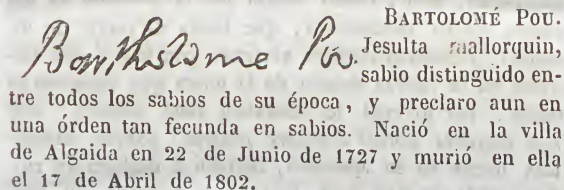 BARTOLOMÉ POU.
Bartholome Pou.
Jesuita mallorquin,
sabio distinguido en-
tre todos los sabios de su época, y preclaro aun en
una órden tan fecunda en sabios. Nació en la villa
de Algaida en 22 de Junio de 1727 y murió en ella
el 17 de Abril de 1802.